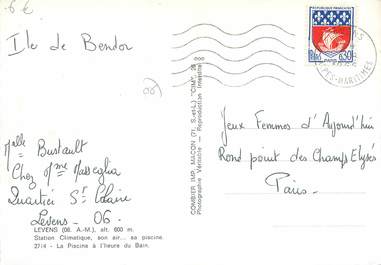 6 €
Ile de Bendor
(06)
Melle Bustault
Chez Mme Masseglia
Quartier St Claire
Levens - 06.
LEVENS (06. A.-M.), alt. 600 m.
Station Climatique, son air... sa piscine.
27/4 - La Piscine à l'heure du Bain.
COMBIER IMP. MACON (71, S.-et-L.) "CIM" 28 000
Photographie Véritable — Reproduction Interdite
REPUBLIQUE FRANÇAISE
0,30
PARIS
ALPES-MARITIMES
Jeux Femmes d'Aujourd'hui
Rond point des Champs Elysés
Paris.